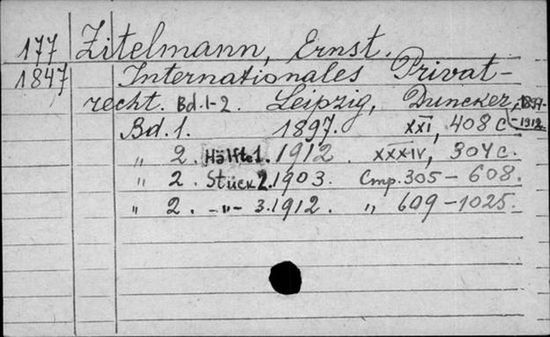 177 Zitelmann, Ernst.
1847 Internationales Privat-
recht. Bd. 1-2. Leipzig, Duncker, 1897-1912.
Bd. 1. 1897. XXI, 408 c.
" 2. Hälfte 1. 1912. XXXIV, 304 c.
" 2. Stück 2. 1903. Cmp. 305-608.
" 2. -"- 3. 1912. " 609-1025.